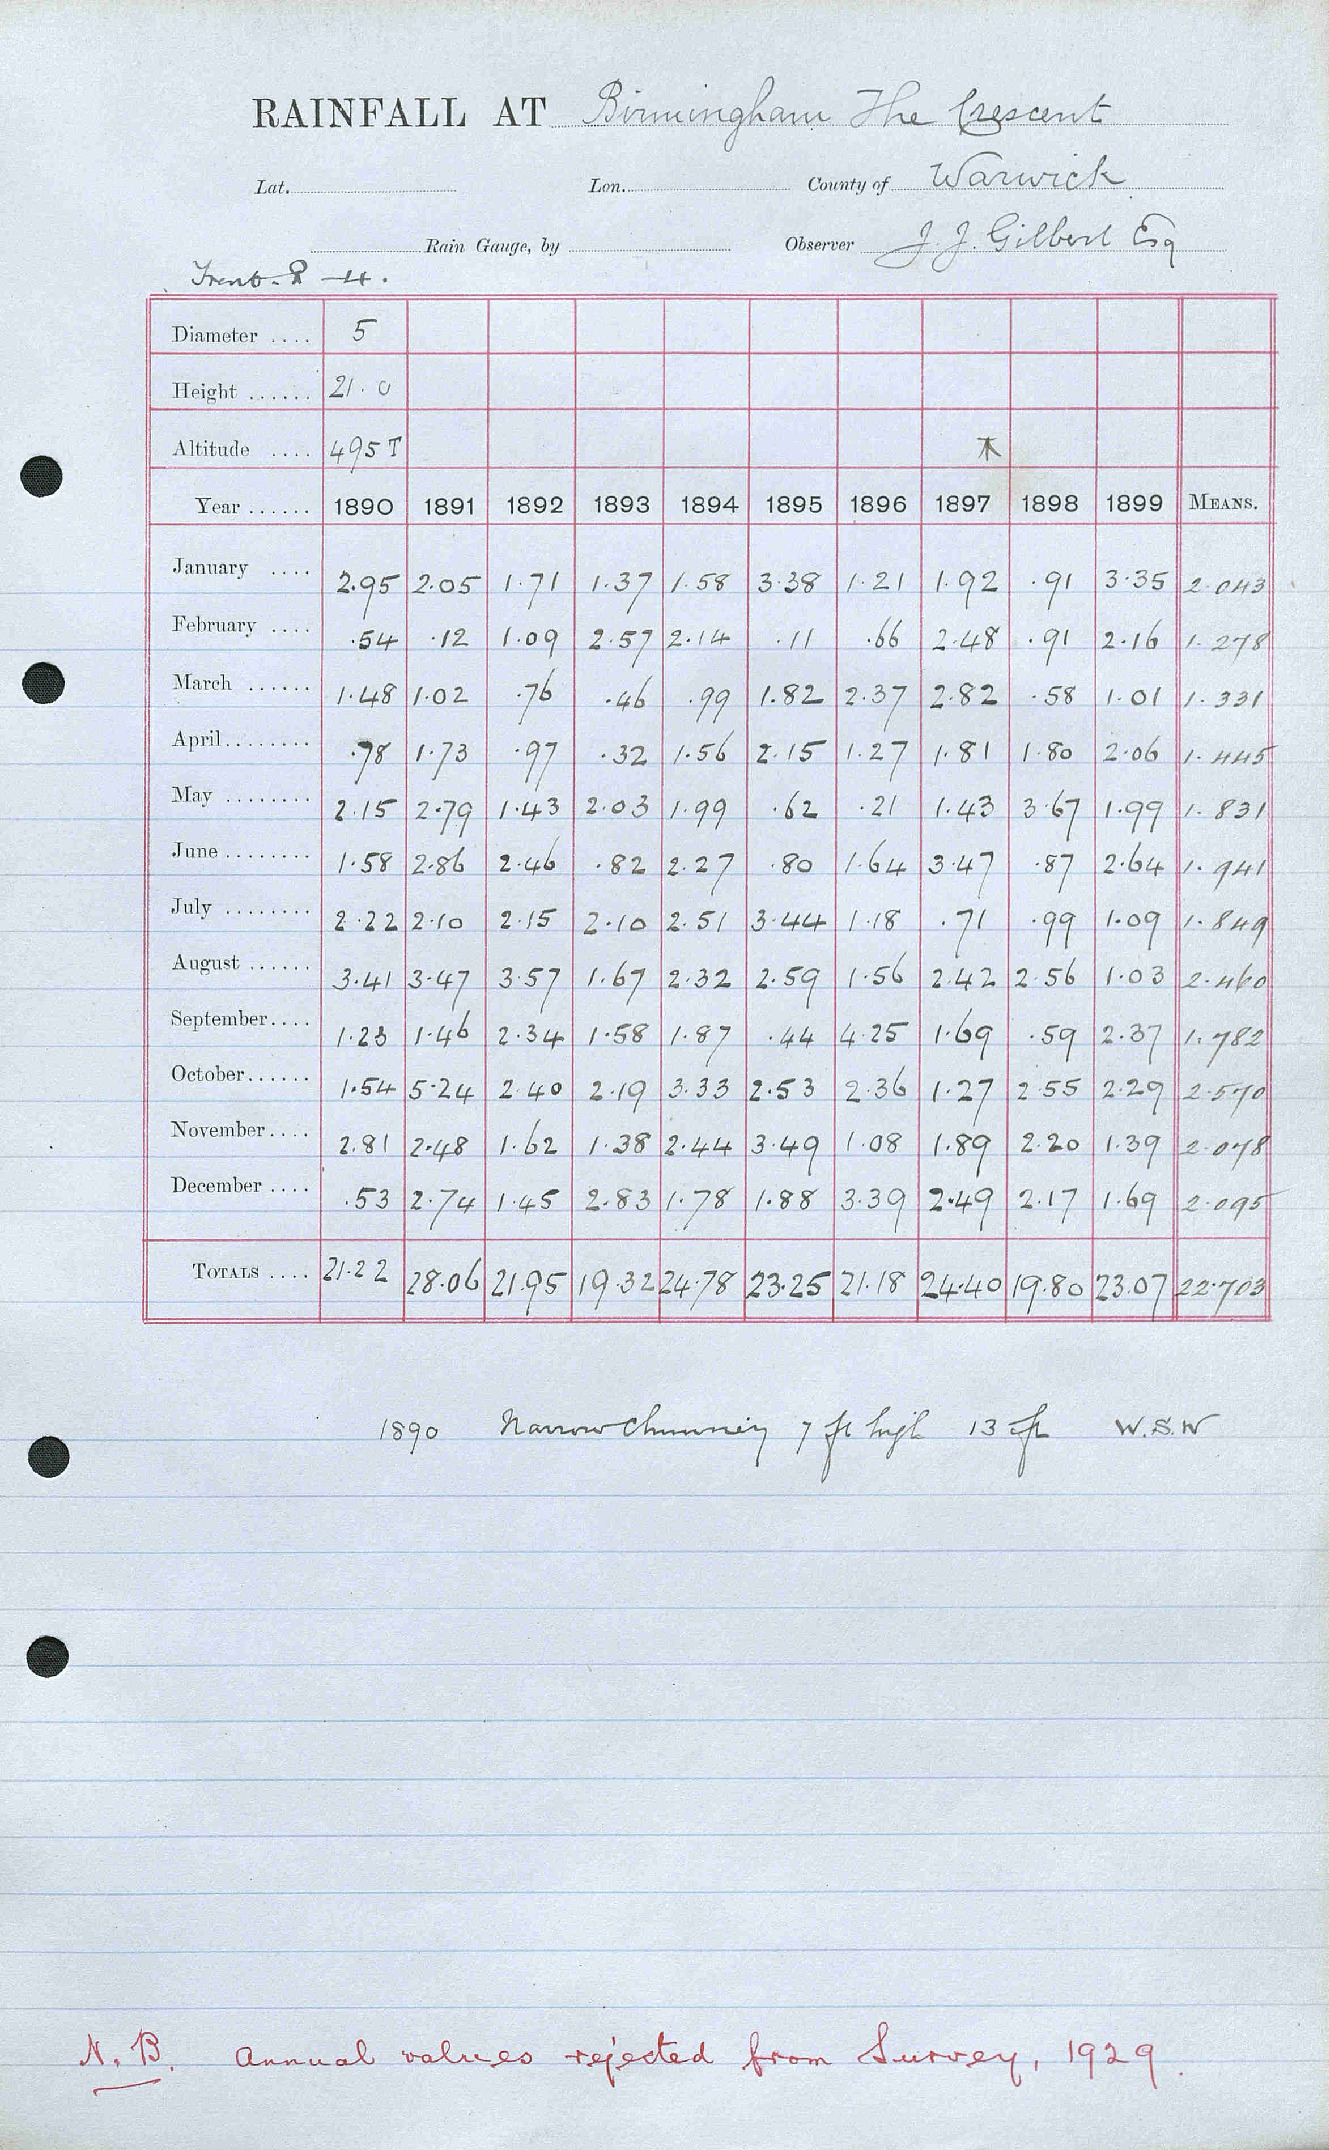 RAINFALL AT Birmingham The Crescent
Lat. Lon. County of Warwick
Rain Gauge, by Observer J. J. Gilbert Esq
Trent. 8 4.
Diameter .... 5
Height ...... 21.0
Altitude .... 495 T
Year ...... 1890 1891 1892 1893 1894 1895 1896 1897 1898 1899 MEANS.
January .... 2.95 2.05 1.71 1.37 1.58 3.38 1.21 1.92 .91 3.35 2.043
February .... .54 .12 1.09 2.57 2.14 .11 .66 2.48 .91 2.16 1.278
March ...... 1.48 1.02 .76 .46 .99 1.82 2.37 2.82 .58 1.01 1.331
April ........ .78 1.73 .97 .32 1.56 2.15 1.27 1.81 1.80 2.06 1.445
May ........ 2.15 2.79 1.43 2.03 1.99 .62 .21 1.43 3.67 1.99 1.831
June ........ 1.58 2.86 2.46 .82 2.27 .80 1.64 3.47 .87 2.64 1.941
July ........ 2.22 2.10 2.15 2.10 2.51 3.44 1.18 .71 .99 1.09 1.849
August ...... 3.41 3.47 3.57 1.67 2.32 2.59 1.56 2.42 2.56 1.03 2.460
September .... 1.23 1.46 2.34 1.58 1.87 .44 4.25 1.69 .59 2.37 1.782
October ...... 1.54 5.24 2.40 2.19 3.33 2.53 2.36 1.27 2.55 2.29 2.570
November .... 2.81 2.48 1.62 1.38 2.44 3.49 1.08 1.89 2.20 1.39 2.078
December .... .53 2.74 1.45 2.83 1.78 1.88 3.39 2.49 2.17 1.69 2.095
TOTALS .... 21.22 28.06 21.95 19.32 24.78 23.25 21.18 24.40 19.80 23.07 22.703
1890 Narrow Chimney 7 ft high 13 ft W.S.W
N.B. Annual values rejected from Survey, 1929.